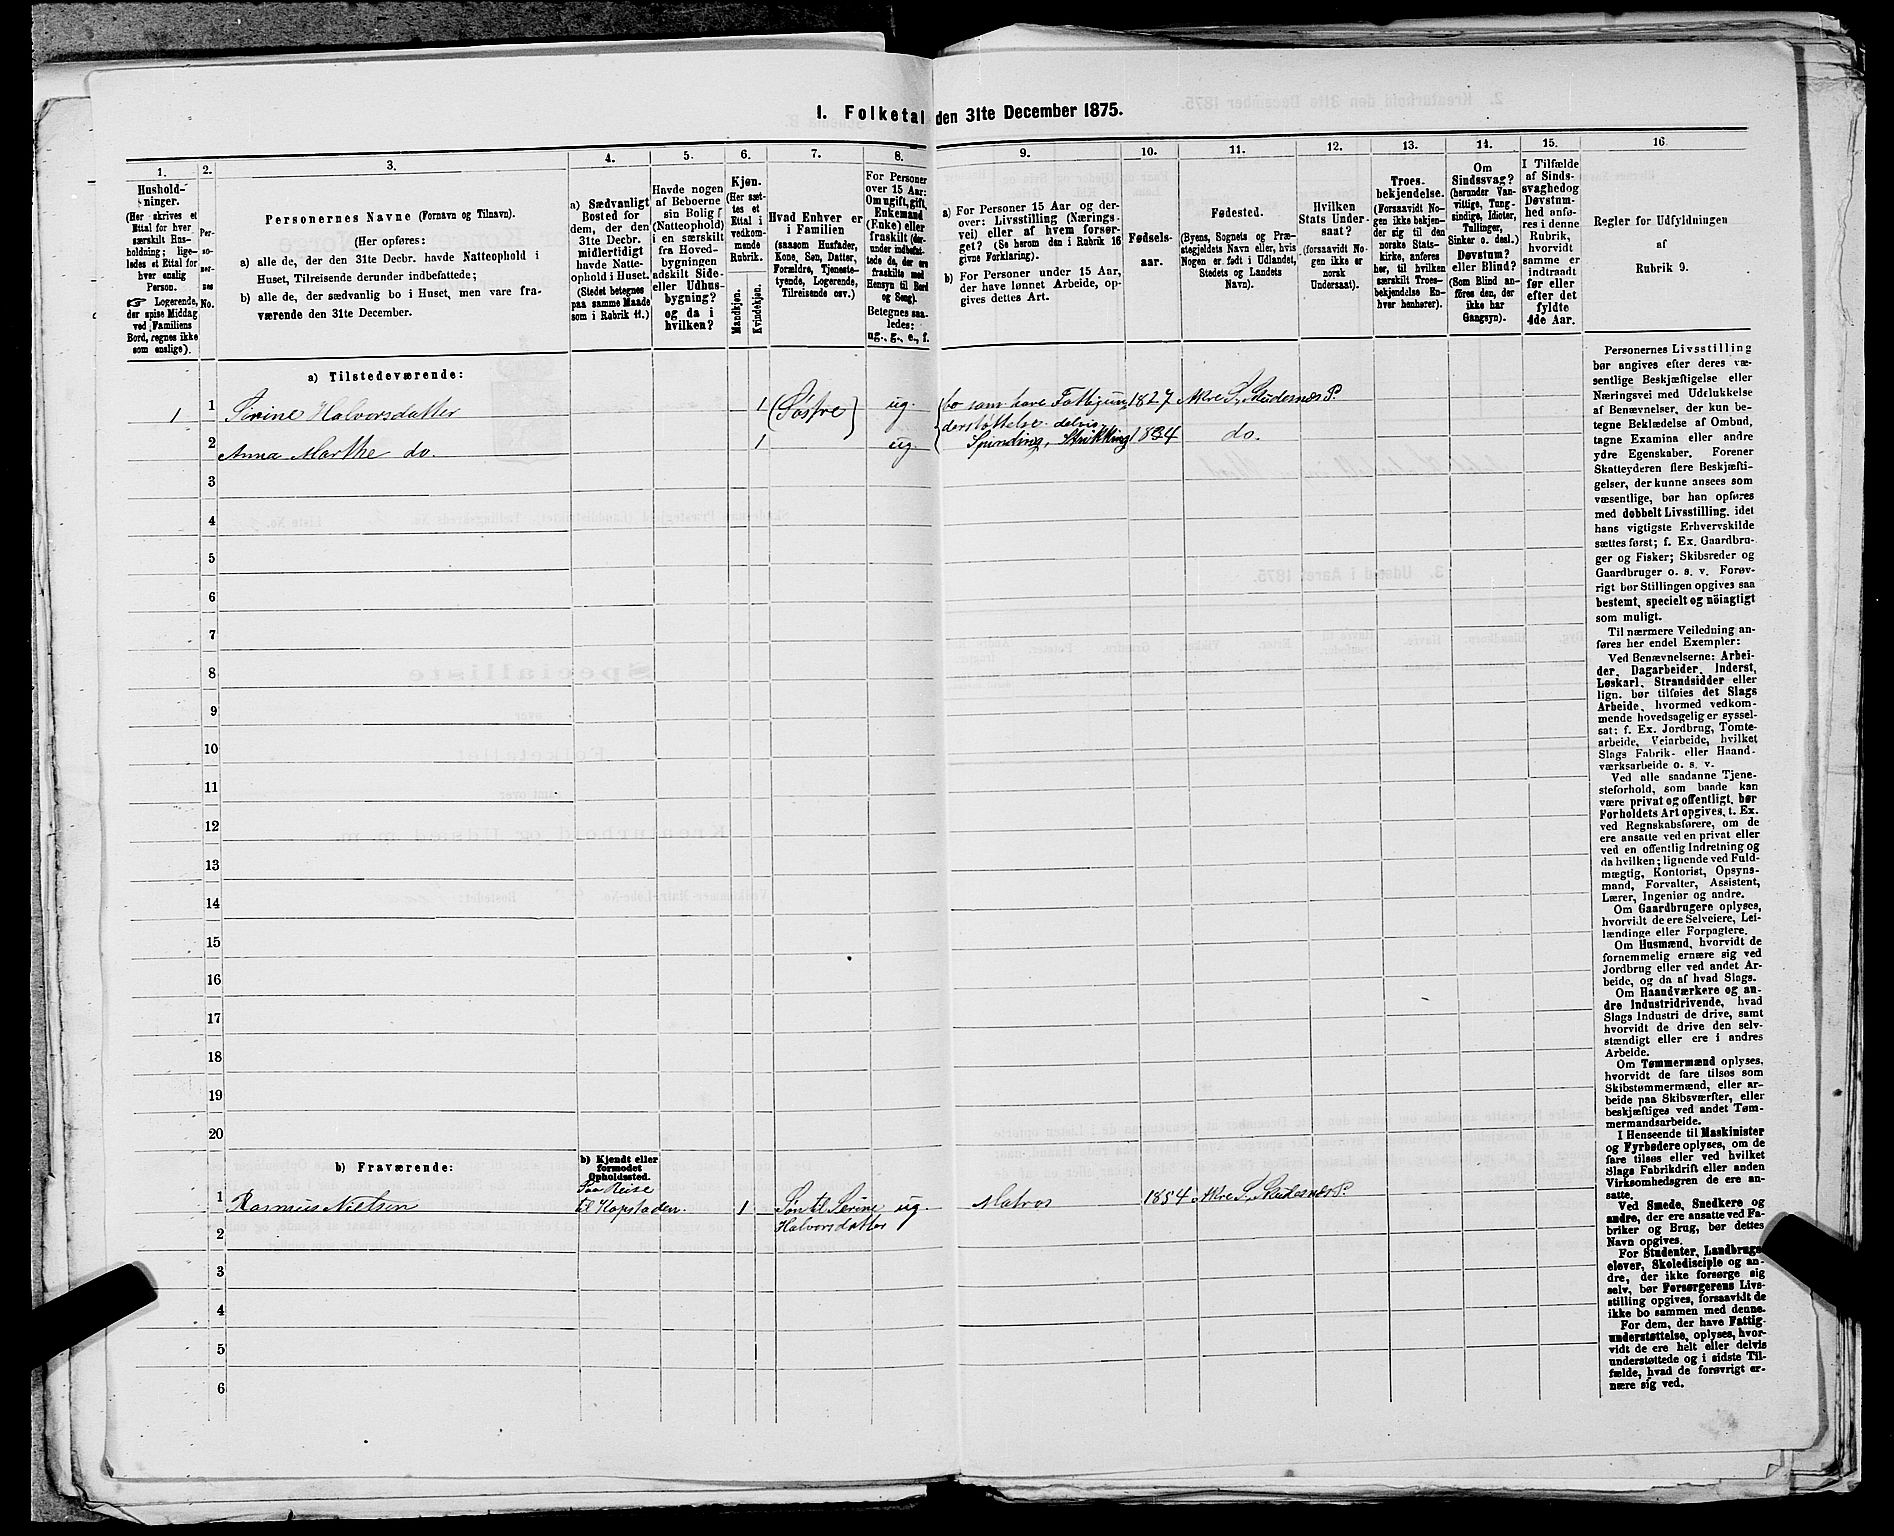 1. Folketal den 31te December 1875.
1.
Hushold-
ninger.
(Her skrives et
Ettal for hver
særskilt Hus-
holdning; lige-
ledes et Ettal for
hver enslig
Person.
☞ Logerende,
der spise Middag
ved Familiens
Bord, regnes ikke
som enslige).
2.
Per-
so-
ner-
nes
No.
3.
Personernes Navne (Fornavn og Tilnavn).
(Her opføres:
a) alle de, der den 31te Decbr. havde Natteophold i
Huset, Tilreisende derunder indbefattede;
b) alle de, der sædvanlig bo i Huset, men vare fra-
værende den 31te December.
4.
a) Sædvanligt
Bosted for
dem, der den
31te Decbr.
midlertidigt
havde Natte-
ophold i Huset.
(Stedet betegnes
paa samme Maade
som i Rubrik 11.)
5.
Havde nogen
af Beboerne
sin Bolig
(Natteophold)
i en særskilt
fra Hoved-
bygningen
adskilt Side-
eller Udhus-
bygning?
og da i
hvilken?
6.
Kjøn.
(Her sæt-
tes et
Ettal i
vedkom-
mende
Rubrik.
Mandkjøn.
Kvindekjøn.
7.
Hvad Enhver er
i Familien
(saasom Husfader,
Kone, Søn, Datter,
Forældre, Tjeneste-
tyende, Logerende,
Tilreisende osv.)
8.
For Personer
over 15 Aar:
Om ugift, gift,
Enkemand
(Enke) eller
fraskilt (der-
under indbefat-
tede de, der ere
fraskilte med
Hensyn til Bord
og Seng).
Betegnes saa-
ledes:
ug., g., e., f.
9.
a) For Personer 15 Aar og der-
over: Livsstilling (Nærings-
vei) eller af hvem forsør-
get? (Se herom den i Rubrik 16
givne Forklaring).
b) For Personer under 15 Aar,
der have lønnet Arbeide, op-
gives dettes Art.
10.
Fødsels-
aar.
11.
Fødested.
(Byens, Sognets og Præ-
stegjeldets Navn eller, hvis
Nogen er født i Udlandet,
Stedets og Landets
Navn).
12.
Hvilken
Stats Under-
saat?
(forsaavidt No-
gen ikke er
norsk
Undersaat).
13.
Troes-
bekjendelse.
(Forsaavidt No-
gen ikke bekjen-
der sig til den
norske Stats-
kirke, anføres
her, til hvilken
særskilt Troes-
bekjendelse En-
hver henhører).
14.
Om
Sindssvag?
(herunder Van-
vittige, Tung-
sindige, Idioter,
Tullinger,
Sinker o. desl.)
Døvstum?
eller Blind?
(Som Blind an-
føres den, der
ikke har
Gangsyn).
15.
I Tilfælde
af Sinds-
svaghed og
Døvstum-
hed anfø-
res i denne
Rubrik,
hvorvidt
samme er
indtraadt
før eller
efter det
fyldte
4de Aar.
16
Regler for Udfyldningen
af
Rubrik 9.
a) Tilstedeværende:
1 1 Serine Halvorsdatter 1 (Søstre) ug. bo sam. have Fattigun- 1827 Akre S. Skudesnæs P.
derstøttelse. delvis
2 Anna Marthe do. 1 ug Spinding, Strikking 1834 do.
3
4
5
6
7
8
9
10
11
12
13
14
15
16
17
18
19
20
b) Fraværende:
b) Kjendt eller
formodet
Opholdssted.
Paa Reise
1 Rasmus Nielsen til Kapstaden. 1 Søn til Serine ug. Matros 1854 Akre S. Skudesnæs P.
2 Halvorsdatter
3
4
5
6
Personernes Livsstilling
bør angives efter deres væ-
sentlige Beskjæftigelse eller
Næringsvei med Udelukkelse
af Benævnelser, der kun be-
tegne Beklædelse af Ombud,
tagne Examina eller andre
ydre Egenskaber. Forener
Skatteyderen flere Beskjæfti-
gelser, der kunne ansees som
væsentlige, bør han opføres
med dobbelt Livsstilling, idet
hans vigtigste Erhvervskilde
sættes først; f. Ex. Gaardbru-
ger og Fisker; Skibsreder og
Gaardbruger o. s. v. Forøv-
rigt bør Stillingen opgives saa
bestemt, specielt og nöiagtigt
som muligt.
Til nærmere Veiledning an-
føres her endel Exempler:
Ved Benævnelserne: Arbei-
der, Dagarbeider, Inderst,
Løskarl, Strandsidder eller
lign. bør tilføies det Slags
Arbeide, hvormed vedkom-
mende hovedsagelig er syssel-
sat; f. Ex. Jordbrug, Tomte-
arbeide, Veiarbeide, hvilket
Slags Fabrik- eller Haand-
værksarbeide o. s. v.
Ved alle saadanne Tjene-
steforhold, som baade kan
være privat og offentligt, bør
Forholdets Art opgives, t. Ex.
ved Regnskabsførere, om de
ere ansatte ved en privat eller
ved en offentlig Indretning og
da hvilken; lignende ved Fuld-
mægtig, Kontorist, Opsyns-
mand, Forvalter, Assistent,
Lærer, Ingeniør og andre.
Om Gaardbrugere oplyses,
hvorvidt de ere Selveiere, Lei-
lændinge eller Forpagtere.
Om Husmænd, hvorvidt de
fornemmelig ernære sig ved
Jordbrug eller ved andet Ar-
beide, og da af hvad Slags.
Om Haandværkere og an-
dre Industridrivende, hvad
Slags Industri de drive, samt
hvorvidt de drive den selv-
stændigt eller ere i andres
Arbeide.
Om Tømmermænd oplyses,
hvorvidt de fare tilsøs som
Skibstømmermænd, eller ar-
beide paa Skibsværfter, eller
beskjæftiges ved andet Tøm-
mermandsarbeide.
I Henseende til Maskinister
og Fyrbødere oplyses, om de
fare tilsøs eller ved hvilket
Slags Fabrikdrift eller anden
Virksomhedsgren de ere an-
satte.
Ved Smede, Snedkere og
andre, der ere ansatte ved Fa-
briker og Brug, bør dettes
Navn opgives.
For Studenter, Landbrugs-
elever, Skoledisciple og an-
dre, der ikke forsørge sig
selv, bør Forsørgerens Livs-
stilling opgives, forsaavidt de
ikke bo sammen med denne.
For dem, der have Fattig-
understøttelse, oplyses, hvor-
vidt de ere helt eller delvis
understøttede og i sidste Til-
fælde, hvad de forøvrigt er-
nære sig ved.